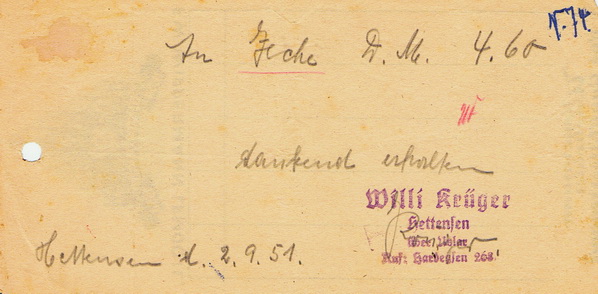 V. 74
An Zeche D. M. 4.60
dankend erhalten
Willi Krüger
Hettensen
über Uslar
Ruf: Hardegsen 268
Hettensen d. 2.9.51.